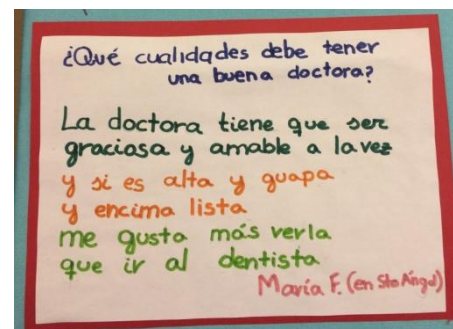 ¿Qué cualidades debe tener
una buena doctora?
La doctora tiene que ser
graciosa y amable a la vez
y si es alta y guapa
y encima lista
me gusta más verla
que ir al dentista
María F. (en Sto Ángel)